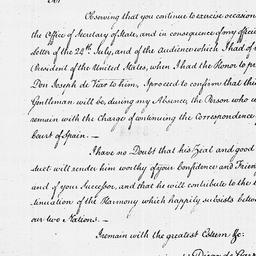 Observing that you continue to exercise occasion
the Office of Secretary of State, and in consequence of my official
Letter of the 24th July, and of the Audience which I had of
President of the United States, when I had the Honor to pre
Don Joseph de Viar to him, I proceed to confirm that this
Gentleman will be, during my Absence, the Person who w
remain with the Charge of continuing the Correspondence
Court of Spain. —
I have no Doubt that his Zeal and good
duct will render him worthy of your Confidence and Frien
and of your Successor, and that he will contribute to the
tinuation of the Harmony which happily subsists betw
our two Nations. —
I remain with the greatest Esteem &c: